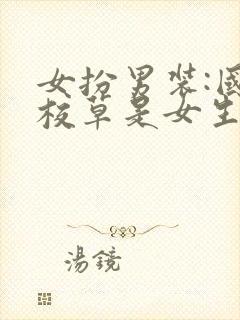 女扮男裝:國
校草是女生
湯鏡